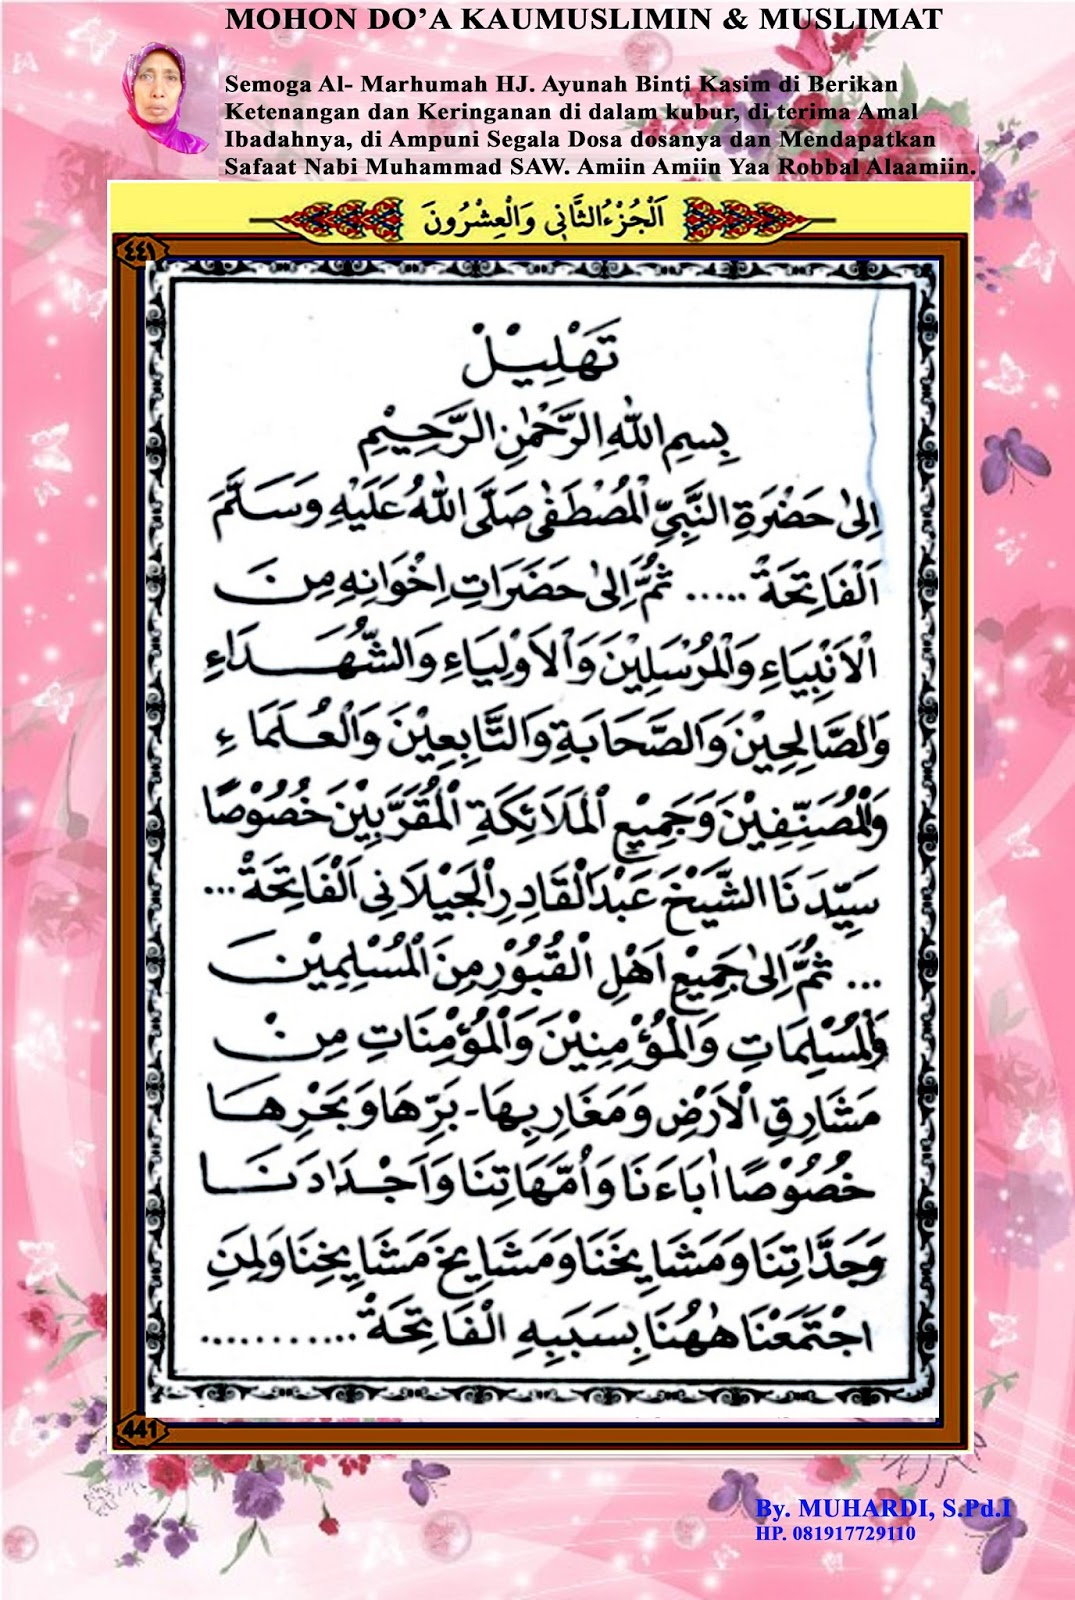 MOHON DO’A KAUMUSLIMIN & MUSLIMAT
Semoga Al- Marhumah HJ. Ayunah Binti Kasim di Berikan
Ketenangan dan Keringanan di dalam kubur, di terima Amal
Ibadahnya, di Ampuni Segala Dosa dosanya dan Mendapatkan
Safaat Nabi Muhammad SAW. Amiin Amiin Yaa Robbal Alaamiin.
اَلْجُزْءُ الثَّانِي وَالْعِشْرُونَ
٤٤١
تَهْلِيْلْ
بِسْمِ اللهِ الرَّحْمٰنِ الرَّحِيْمِ
اِلىٰ حَضْرَةِ النَّبِيِّ الْمُصْطَفٰى صَلَّى اللهُ عَلَيْهِ وَسَلَّمَ
اَلْفَاتِحَةْ ..... ثُمَّ اِلىٰ حَضَرَاتِ اِخْوَانِهِ مِنَ
الْاَنْبِيَاءِ وَالْمُرْسَلِيْنَ وَالْاَوْلِيَاءِ وَالشُّهَدَاءِ
وَالصَّالِحِيْنَ وَالصَّحَابَةِ وَالتَّابِعِيْنَ وَالْعُلَمَاءِ
وَالْمُصَنِّفِيْنَ وَجَمِيْعِ الْمَلَائِكَةِ الْمُقَرَّبِيْنَ خُصُوْصًا
سَيِّدَنَا الشَّيْخَ عَبْدَ الْقَادِرِ الْجَيْلَانِى اَلْفَاتِحَةْ ...
... ثُمَّ اِلىٰ جَمِيْعِ اَهْلِ الْقُبُوْرِ مِنَ الْمُسْلِمِيْنَ
وَالْمُسْلِمَاتِ وَالْمُؤْمِنِيْنَ وَالْمُؤْمِنَاتِ مِنْ
مَشَارِقِ الْاَرْضِ وَمَغَارِبِهَا - بَرِّهَا وَبَحْرِهَا
خُصُوْصًا اٰبَاءَنَا وَاُمَّهَاتِنَا وَاَجْدَادَنَا
وَجَدَّاتِنَا وَمَشَايِخَنَا وَمَشَايِخَ مَشَايِخِنَا وَلِمَنِ
اجْتَمَعْنَا هٰهُنَا بِسَبَبِهِ الْفَاتِحَةْ ...........
441
By. MUHARDI, S.Pd.I
HP. 081917729110